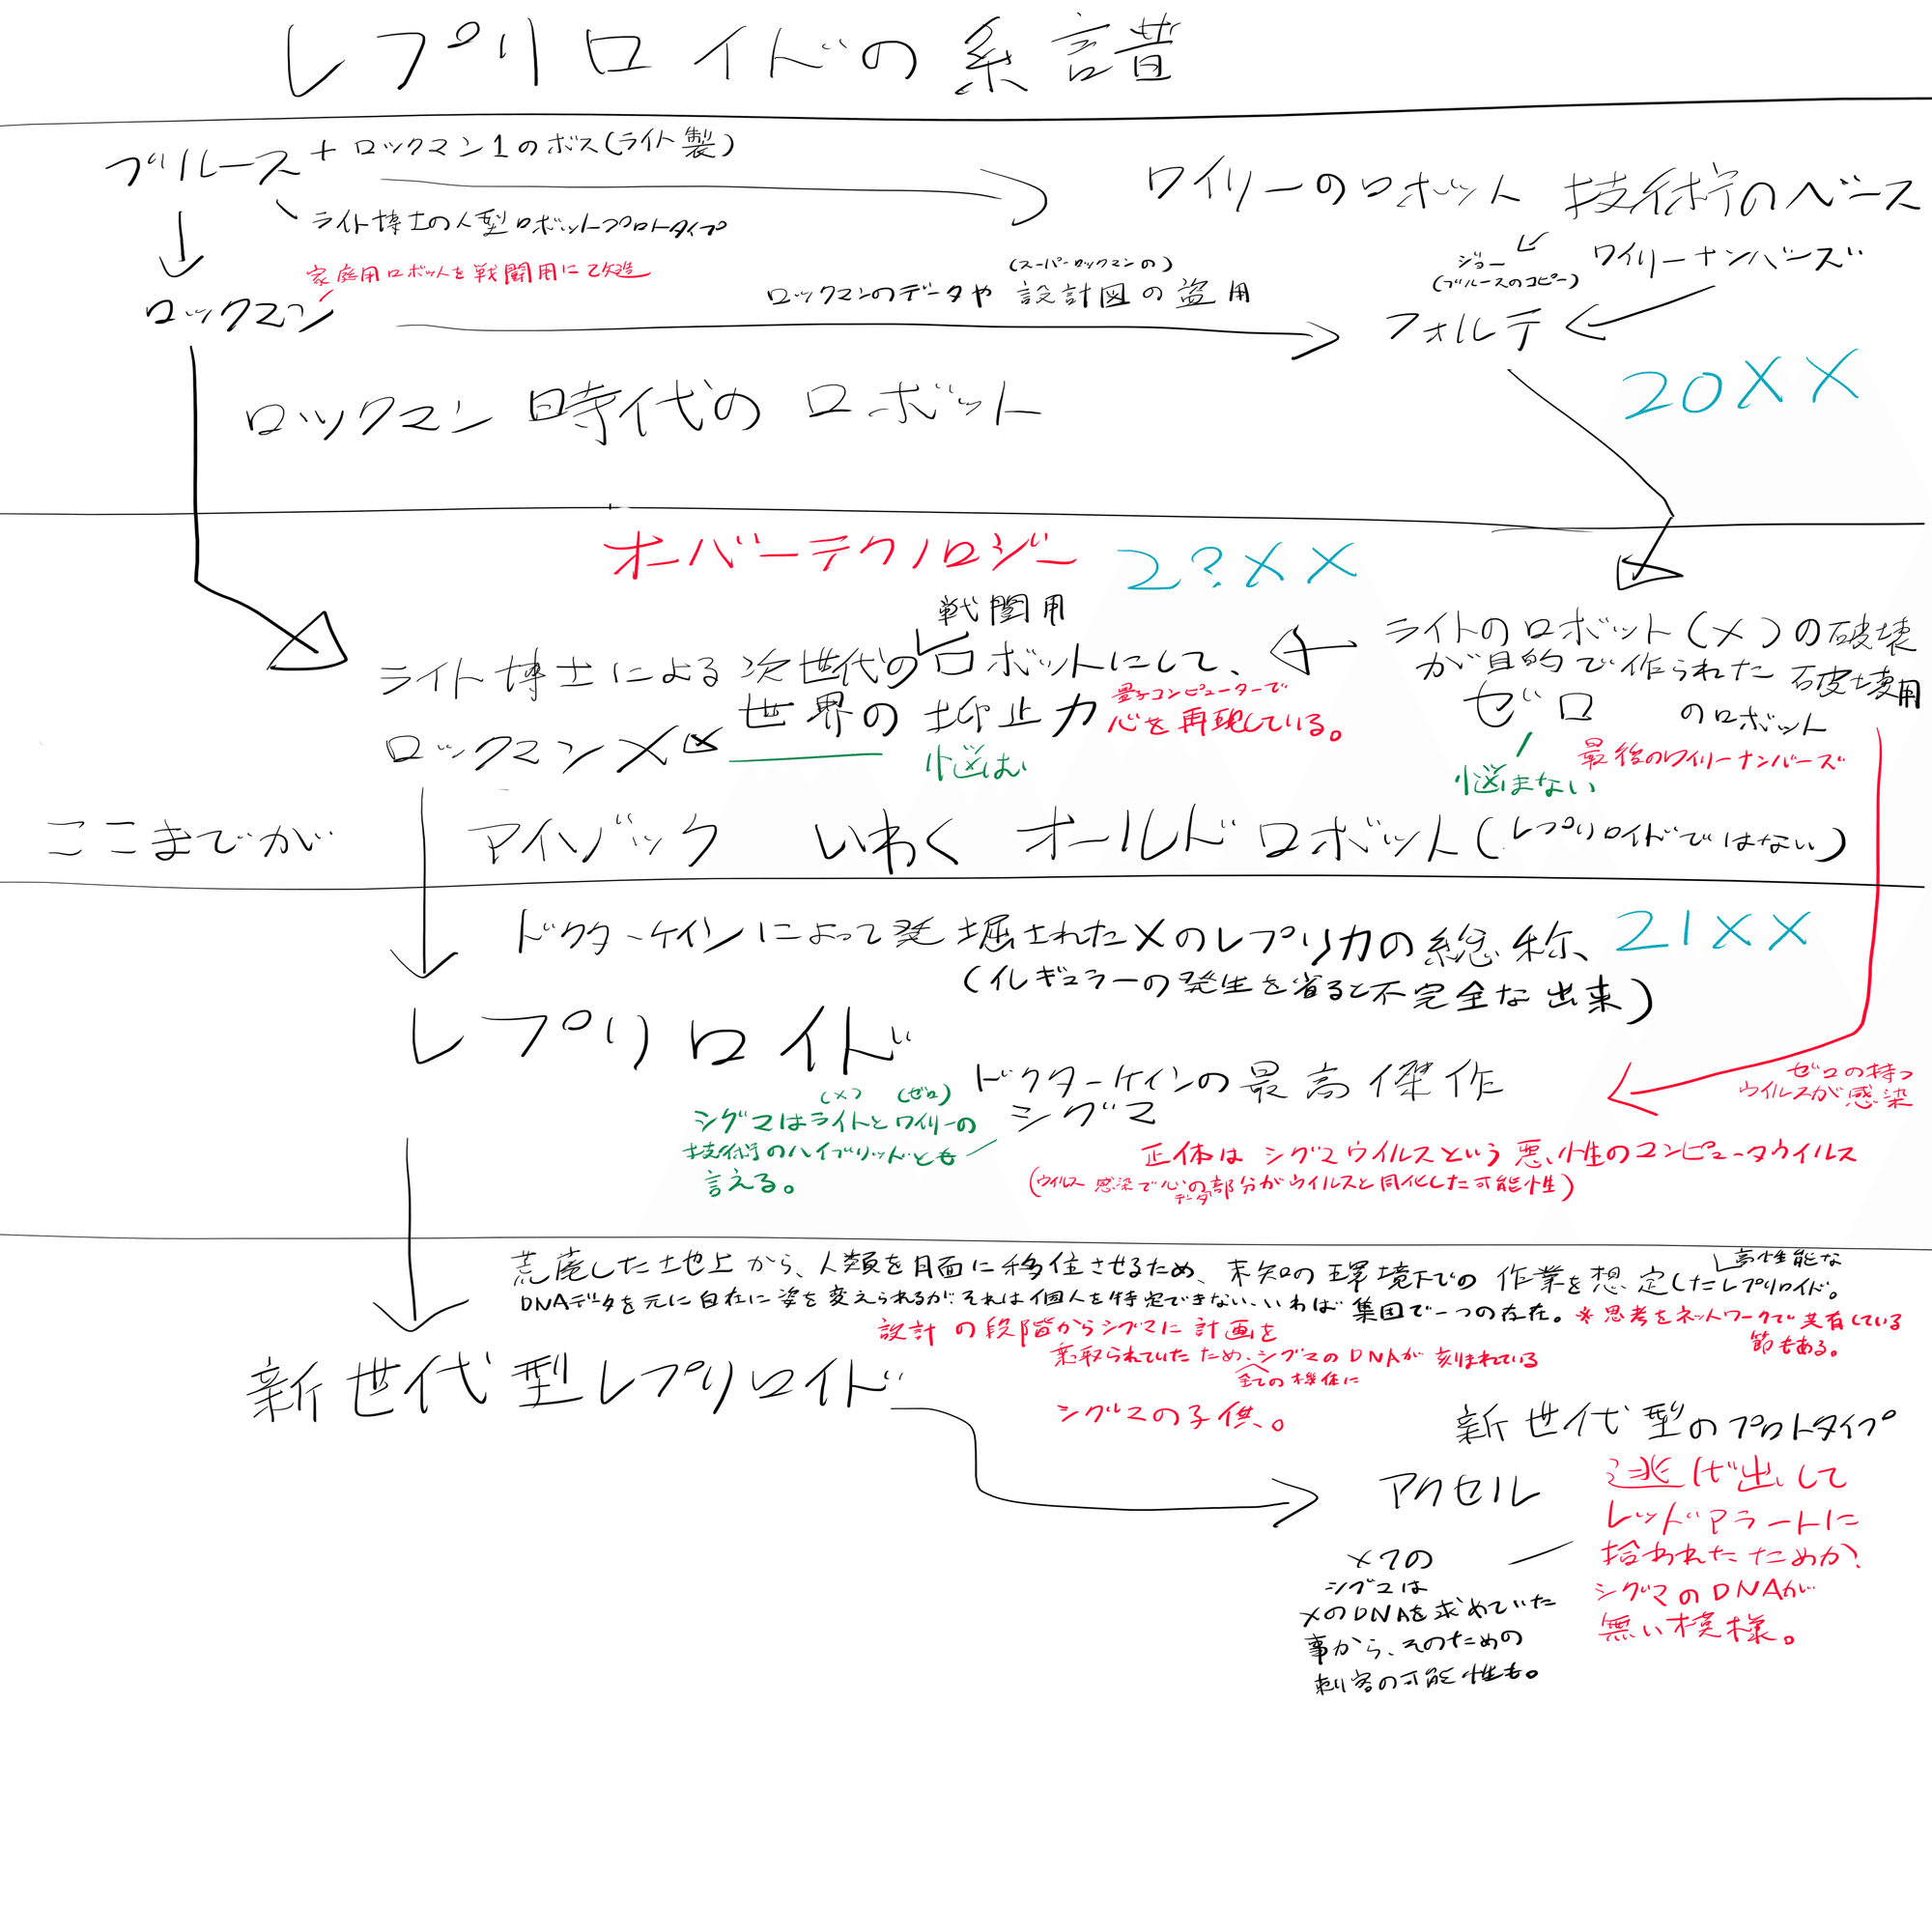 レプリロイドの系譜
ブルース+ロックマン1のボス(ライト製)
ワイリーのロボット技術のベース
ライト博士の人型ロボットプロトタイプ
家庭用ロボットを戦闘用に改造
ロックマン
(スーパーロックマンの)
ロックマンのデータや設計図の盗用
ジョー
(ブルースのコピー)
ワイリーナンバーズ
フォルテ
20XX
ロックマン時代のロボット
オーバーテクノロジー
2?XX
戦闘用
ライト博士による次世代のロボットにして、
世界の抑止力
量子コンピューターで
心を再現している。
ロックマンX
悩む
ライトのロボット(X)の破壊
が目的で作られた破壊用
ゼロ のロボット
最後のワイリーナンバーズ
悩まない
ここまでが アイゾック いわく オールドロボット(レプリロイドではない)
ドクターケインによって発掘されたXのレプリカの総称、
21XX
(イレギュラーの発生を省ると不完全な出来)
レプリロイド
ドクターケインの最高傑作
シグマ
ゼロの持つ
ウイルスが感染
(X) (ゼロ)
シグマはライトとワイリーの
技術のハイブリッドとも
言える。
正体はシグマウイルスという悪性のコンピュータウイルス
(ウイルス感染で心の部分がウイルスと同化した可能性)
データ
荒廃した地上から、人類を月面に移住させるため、未知の環境下での作業を想定したレプリロイド。
高性能な
DNAデータを元に自在に姿を変えられるが、それは個人を特定できない、いわば集団で一つの存在。
※思考をネットワークで共有している
節もある。
設計の段階からシグマに計画を
乗取られていたため、シグマのDNAが刻まれている
全ての機体に
シグマの子供。
新世代型レプリロイド
新世代型のプロトタイプ
アクセル
逃げ出して
レッドアラートに
拾われたためか、
シグマのDNAが
無い模様。
X7の
シグマは
XのDNAを求めていた
事から、そのための
刺客の可能性も。